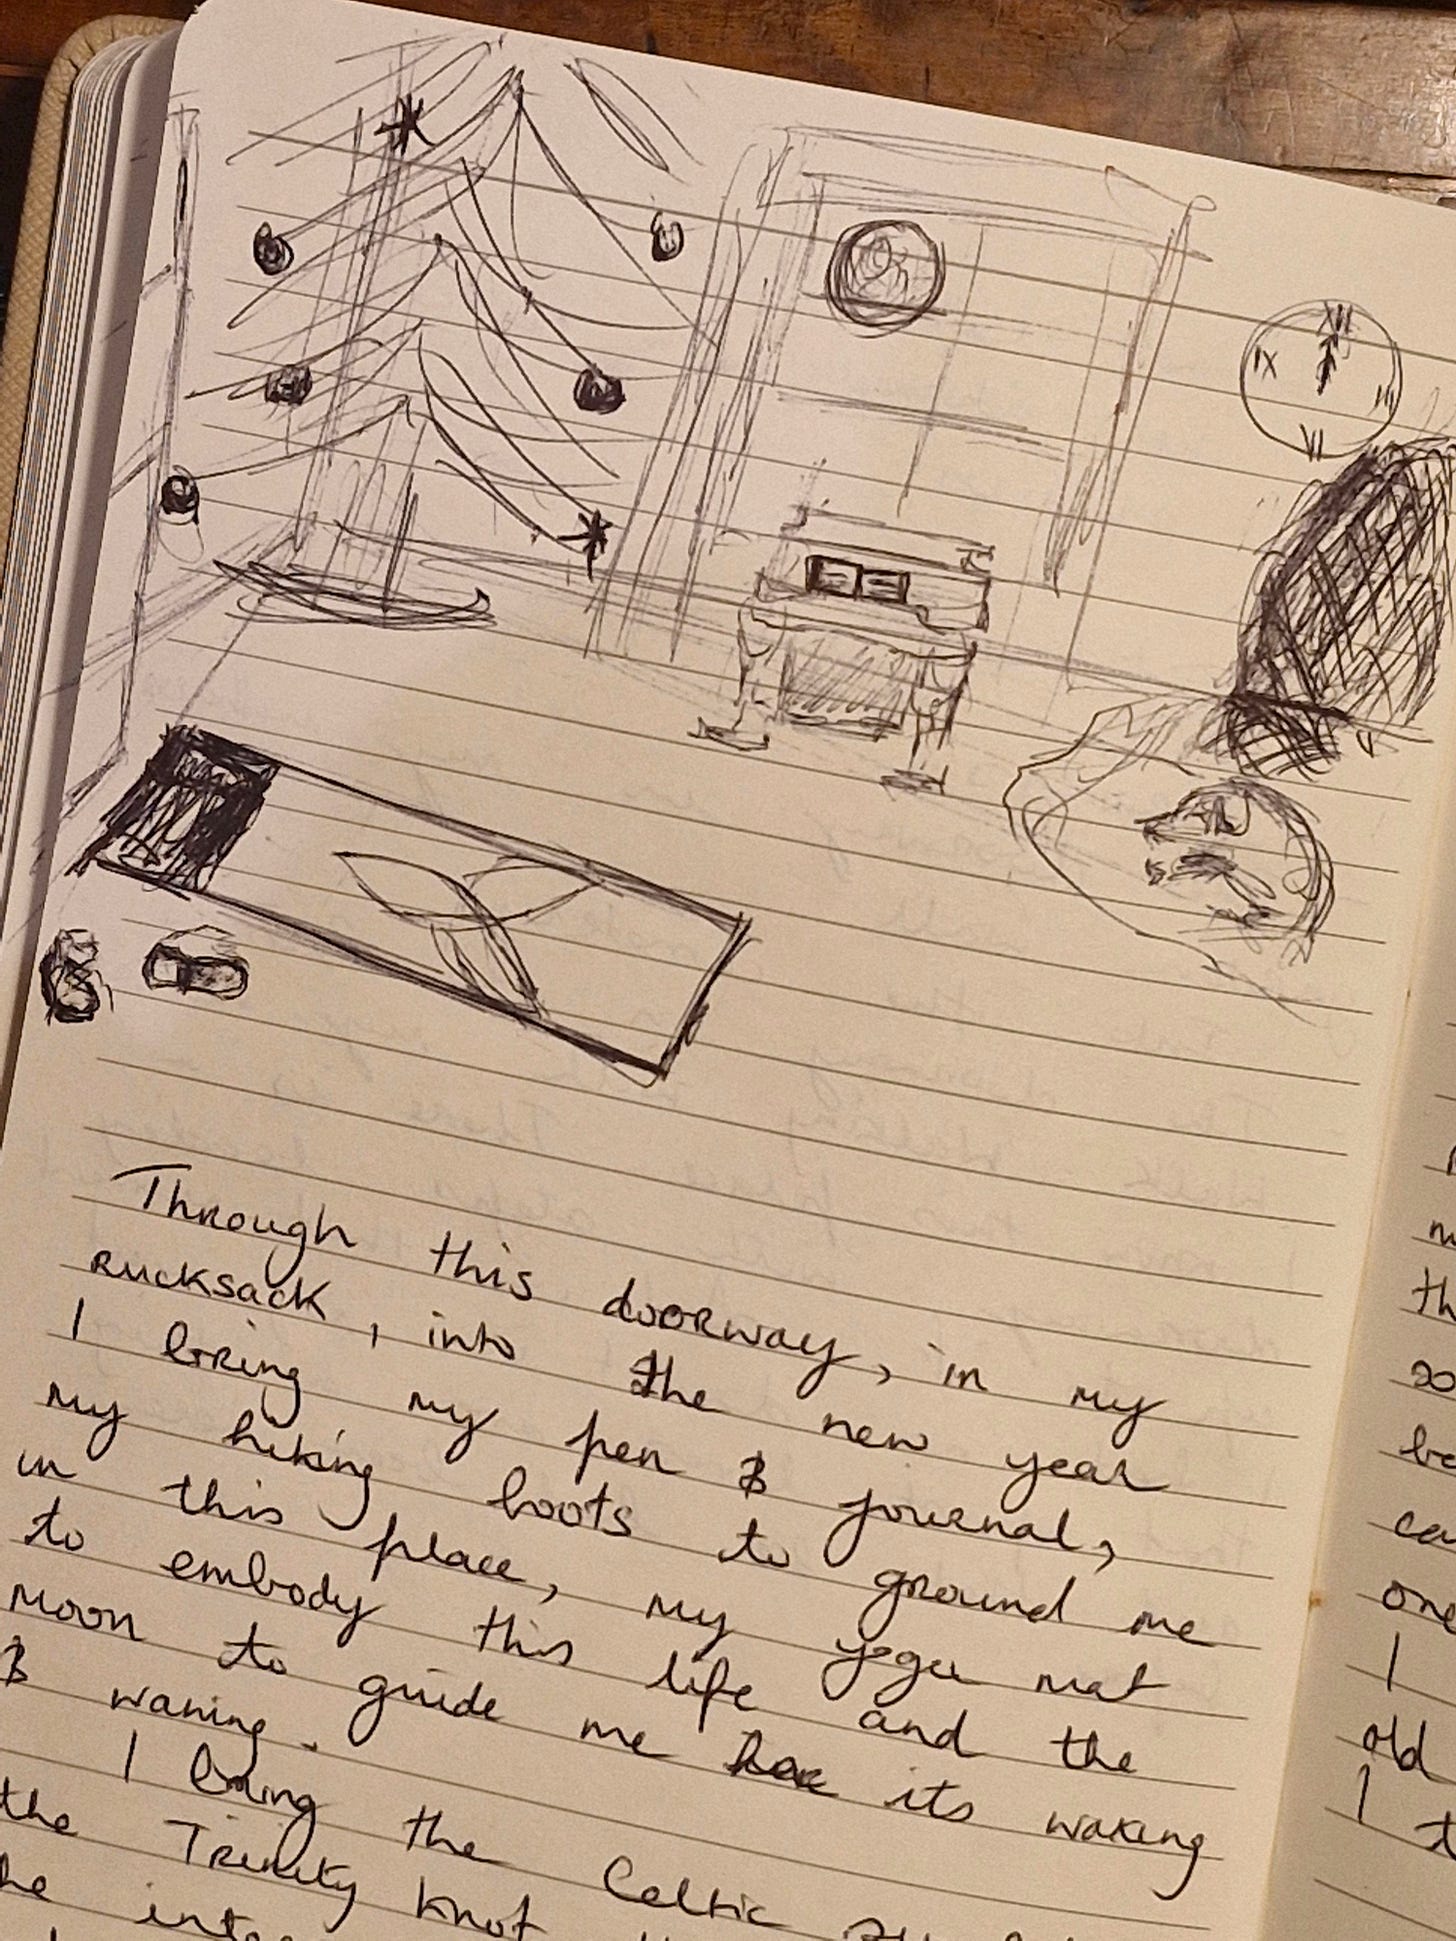 XII
IX
III
VI
Through this doorway, in my
rucksack, into the new year
I bring my pen & journal,
my hiking boots to ground me
in this place, my yoga mat
to embody this life and the
moon to guide me its waxing
& waning.
I bring the Celtic
the Trinity knot
one
I
old
I